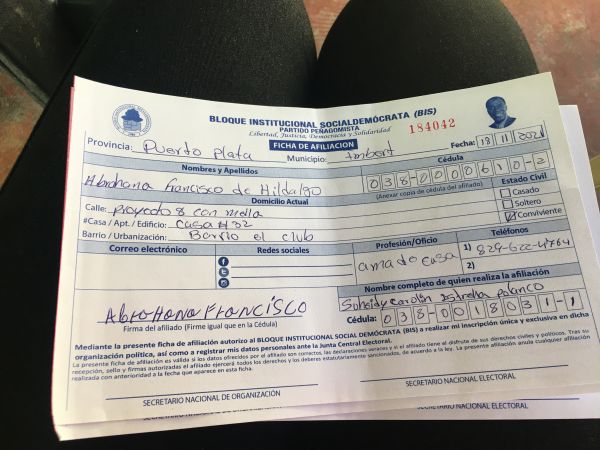 BLOQUE INSTITUCIONAL SOCIALDEMÓCRATA (BIS)
PARTIDO PEÑAGOMISTA
Libertad, Justicia, Democracia y Solidaridad
184042
FICHA DE AFILIACION
Fecha: 13 11 2021
Provincia: Puerto plata Municipio: Imbert
Nombres y Apellidos
Cédula
Abrahana Francisco de Hildalgo
038-0000610-2
(Anexar copia de cédula del afiliado)
Domicilio Actual
Estado Civil
Calle: proyecto 8 con mella
Casado
#Casa / Apt. / Edificio: Casa # 32
Soltero
Barrio / Urbanización: Barrio el club
Conviviente
Correo electrónico
Redes sociales
Profesión/Oficio
Teléfonos
amadecasa
1) 829-622-4764
2)
Nombre completo de quien realiza la afiliación
AbroHana FrancISCO
Firma del afiliado (Firme igual que en la Cédula)
Cédula: 038-0018031-1
Mediante la presente ficha de afiliación autorizo al BLOQUE INSTITUCIONAL SOCIAL DEMÓCRATA (BIS) a realizar mi inscripción única y exclusiva en dicha
organización política, así como a registrar mis datos personales ante la Junta Central Electoral.
La presente ficha de afiliación es válida si los datos ofrecidos por el afiliado son correctos, las declaraciones veraces y si el afiliado tiene el disfrute de sus derechos civiles y políticos. Tras su
recepción, sello y firmas autorizadas el afiliado ejercerá todos los derechos y los deberes estatutariamente sancionados, de acuerdo a la ley. La presente afiliación anula cualquier afiliación
realizada con anterioridad a la fecha que aparece en esta ficha.
SECRETARIO NACIONAL DE ORGANIZACIÓN
SECRETARIO NACIONAL ELECTORAL
SECRETARIO NACIONAL DE ORGANIZACIÓN
SECRETARIO NACIONAL ELECTORAL